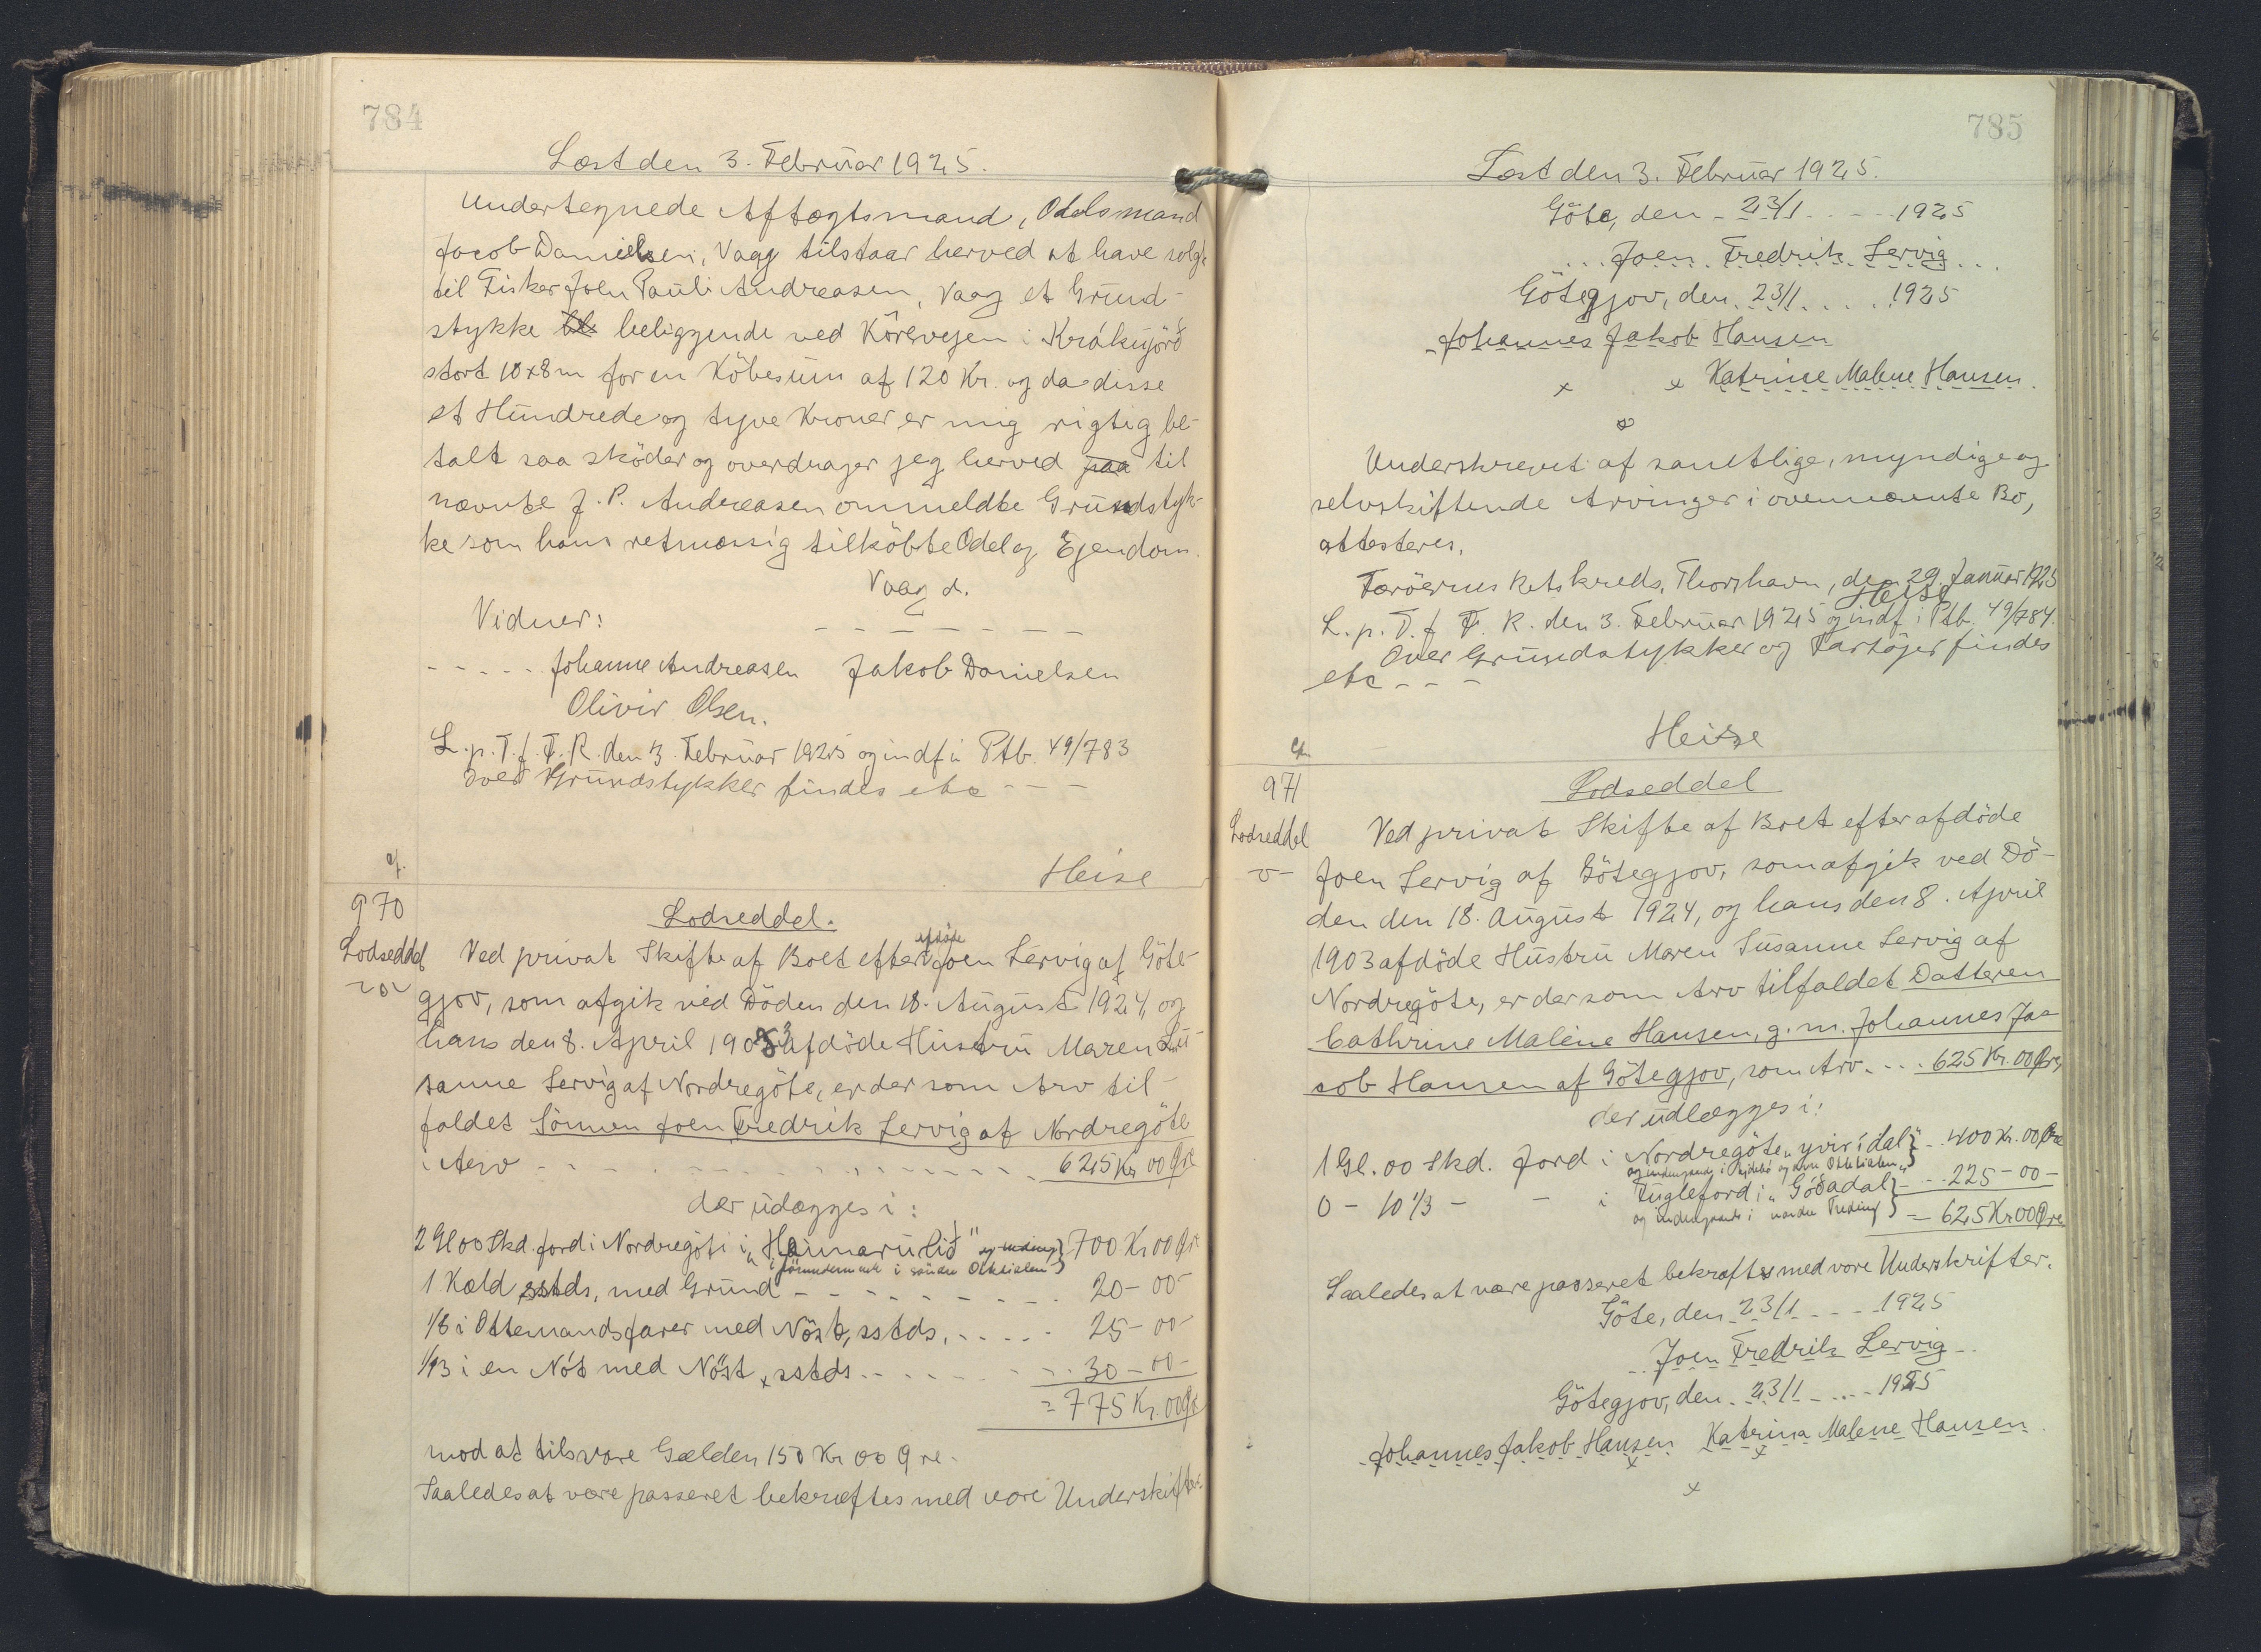 784
Læst den 3. Februar 1925.
Undertegnede Aftægtsmand, Odelsmand
Jacob Danielsen, Vaag tilstaar herved at have solgt
til Fisker Joen Pauli Andreasen, Vaag et Grund-
stykke bl. beliggende ved Körevejen i Krákugjörð
stort 10x8m for en Köbesum af 120 Kr. og da disse
et Hundrede og tyve Kroner er mig rigtig be-
talt saa sköder og overdrager jeg herved paa til
nævnte J. P. Andreasen ommeldte Grundstyk-
ke som hans retmæssig tilköbte Odel og Ejendom.
Vaag d.
Vidner:
Johanne Andreasen Jakob Danielsen
Olivir Olsen.
L. p. T. f. F. R. den 3. Februar 1925 og indf i Ptb. 49/783
Over Grundstykker findes etc - - -
cf.
Heise
970
Lodseddel.
afdöde
Lodseddel Ved privat Skifte af Boet efter Joen Servig af Göte-
gjov, som afgik ved Döden den 18. August 1924, og
hans den 8. April 1903 afdöde Hustru Maren Su-
sanne Servig af Nordregöte, er der som Arv til-
faldet Sönnen Joen Fredrik Servig af Nordregöte
i Arv - - - 625 Kr 00 Øre
der udlægges i:
2 Gl 00 Skd. Jord i Nordregöte i „Heimaru lið" 700 Kr 00 Øre
i söndre Okksialen
1 Kæld sstds, med Grund - - - 20-00-
1/8 i Ottemandsfarer med Nöst, sstds. - - - 25-00-
1/13 i en Nót med Nöst, sstds - - - 30-00-
= 775 Kr. 00 Øre
mod at tilsvare Gælden 150 Kr 00 Øre.
Saaledes at være passeret bekræftes med vore Underskrifter.
785
Læst den 3. Februar 1925.
Göte, den - 23/1 - - - 1925
Joen Fredrik Servig
Götegjov, den 23/1 . . . . 1925
Johannes Jakob Hansen
x x Katrine Malene Hansen.
Underskrevet af samtlige, myndige og
selvskiftende Arvinger i ovennævnte Bo,
attesteres.
Færöernes Retskreds, Thorshavn, den 29. Januar 1925
Heise
L. p. T. f. F. R. den 3. Februar 1925 og indf i Ptb. 49/784.
Over Grundstykker og Fartöjer findes
etc - - -
Heise
cf.
971
Lodseddel
Lodseddel Ved privat Skifte af Boet efter afdöde
Joen Servig af Götegjov, som afgik ved Dö-
den den 18. August 1924, og hans den 8. April
1903 afdöde Hustru Maren Susanne Servig af
Nordregöte, er der som Arv tilfaldet Datteren
Cathrine Malene Hansen, g. m. Johannes Ja-
cob Hansen af Götegjov, som Arv - - - 625 Kr. 00 Øre,
der udlægges i:
1 Gl. 00 Skd. Jord i Nordregöte „yvir í dal" - 400 Kr. 00 Øre
0 - 10 1/3 - - i Fuglefjord i „Góðadal - - - 225-00-
og indengærds i nordre Treding = 625 Kr 00 Øre
Saaledes at være passeret bekræftes med vore Underskrifter.
Göte, den 23/1 - - - 1925
Joen Fredrik Servig
Götegjov, den 23/1 - - - 1925
Johannes Jakob Hansen Katrina Malene Hansen
x x
x